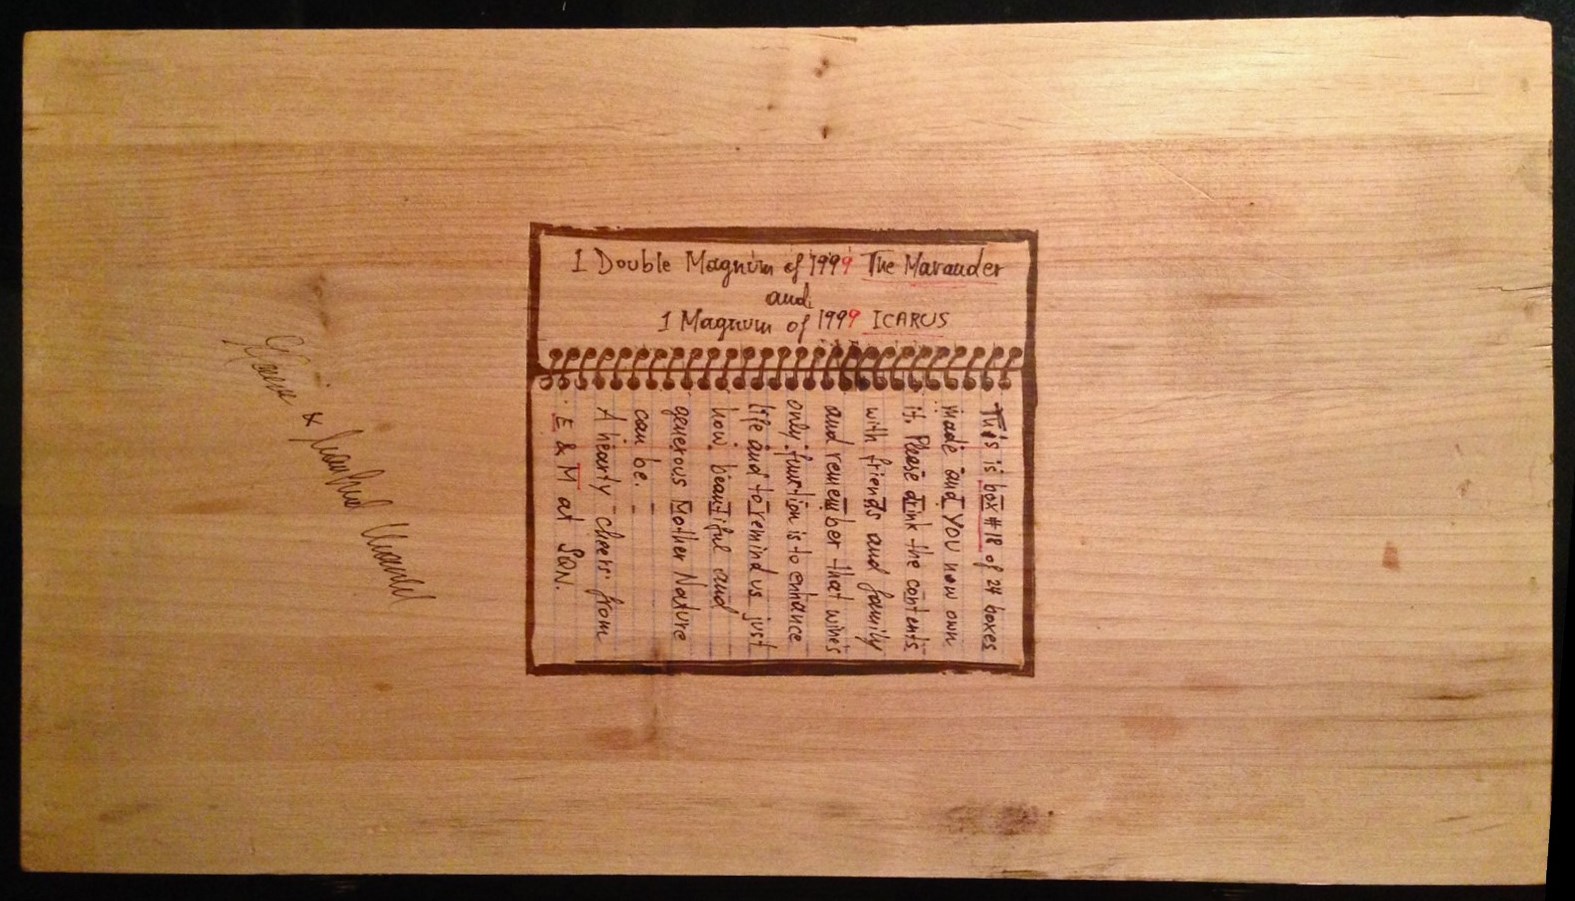 1 Double Magnum of 1999 The Marauder
and
1 Magnum of 1999 ICARUS
This is box #18 of 24 boxes
made and YOU now own
it. Please drink the contents
with friends and family
and remember that wine's
only function is to enhance
life and to remind us just
how beautiful and
generous Mother Nature
can be.
A hearty cheers from
E & M at SQN.
&